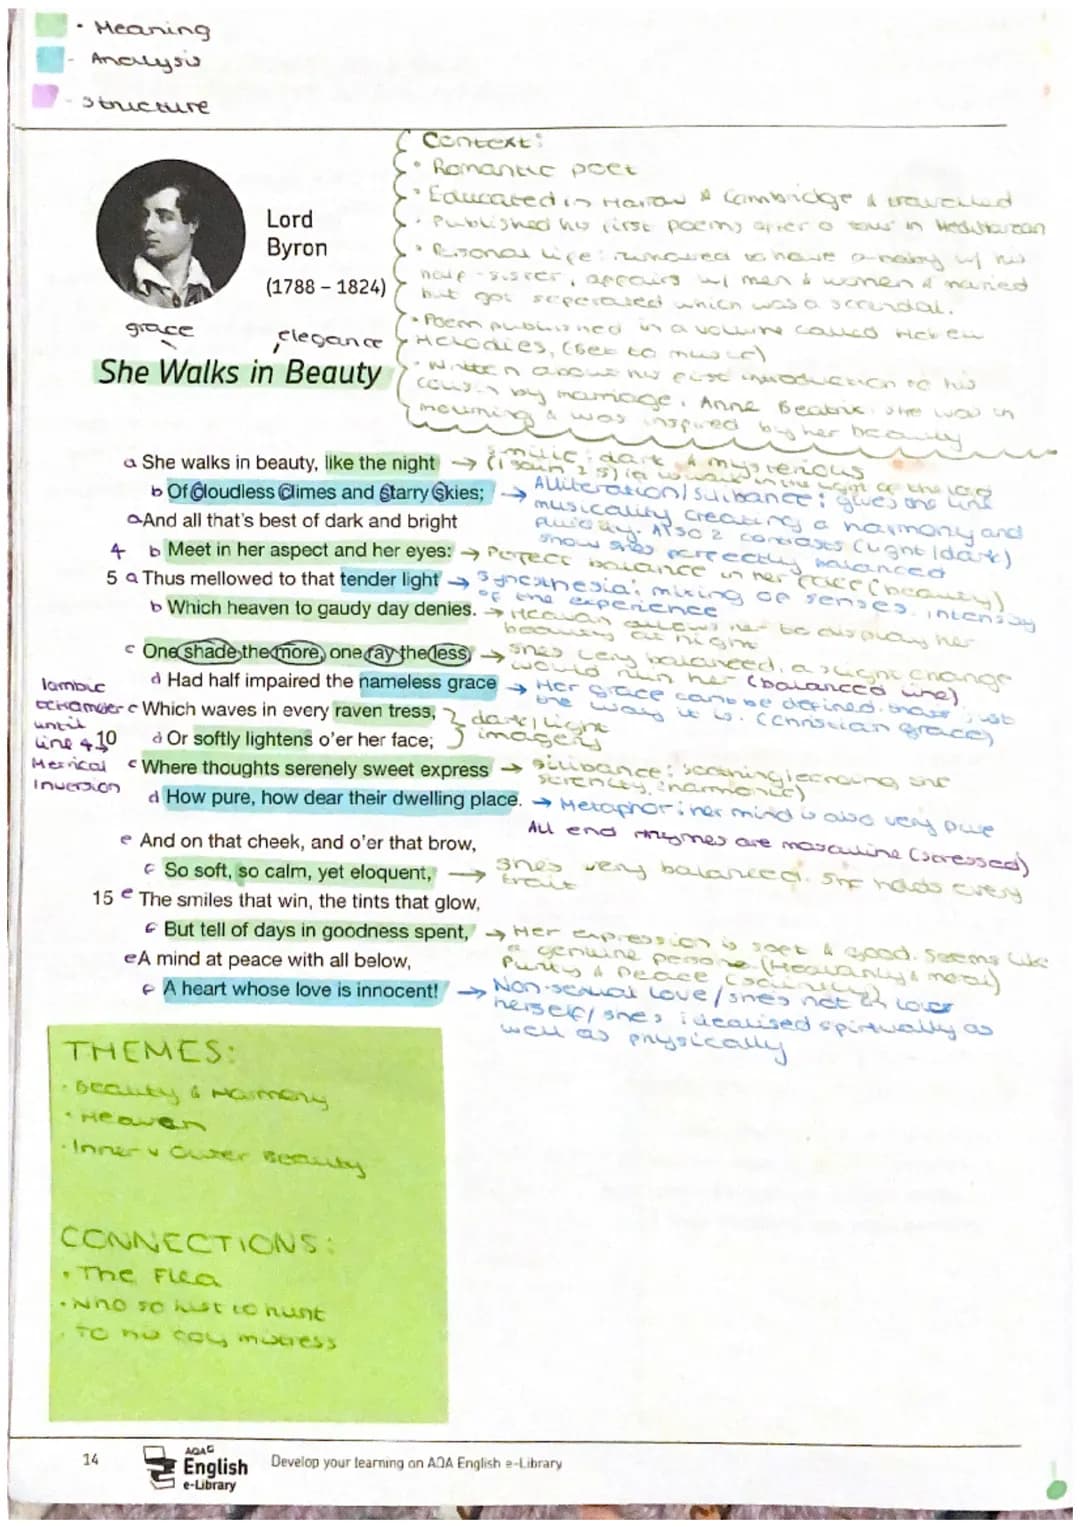 • Meaning
- Analysis
- Structure
Context:
• Romantic poet
• Educated in Harrow & Cambridge & travelled
• Published his first poems after a tour in Mediterranean
• Personal Life: rumoured to have a baby w/ his
half-sister, affairs w/ men & women & married
but got seperated which was a scandal.
• Poem published in a volume called Hebrew
Melodies, (set to music)
• Written about his first introduction to his
cousin by marriage, Anne Beatrix. She was in
mourning & was inspired by her beauty
Lord
Byron
(1788 – 1824)
grace
elegance
She Walks in Beauty
a She walks in beauty, like the night → simile: dark & mysterious
(1 John 2 5) in the light of the lord
b Of Cloudless Climes and Starry Skies; → Alliteration/sibilance: gives the line
musicality creating a harmony and
fluidity. Also 2 contrasts (light/dark)
show shes perfectly balanced
a And all that's best of dark and bright
4 b Meet in her aspect and her eyes: → Perfect balance in her face (beauty)
5 a Thus mellowed to that tender light → Synesthesia: mixing of senses. intensity
of the experience
b Which heaven to gaudy day denies. → Heavan allows her to display her
beauty at night
c One shade the more, one ray the less, → shes very balanced. a slight change
would ruin her (balanced line)
d Had half impaired the nameless grace → Her grace cannot be defined. thats just
the way it is. (Christian grace)
c Which waves in every raven tress,
10 d Or softly lightens o'er her face;
dark/light
imagery
Iambic
tetrameter
until
line 4
Metrical
Inversion
c Where thoughts serenely sweet express → sibilance: soothing
serenity, harmonic)
d How pure, how dear their dwelling place. → Metaphor: her mind is also very pure
All end rhymes are masculine (stressed)
e And on that cheek, and o'er that brow,
f So soft, so calm, yet eloquent, → shes very balanced. She holds every
trait
15 e The smiles that win, the tints that glow,
f But tell of days in goodness spent, → Her expression is soft & good. Seems like
a genuine person. (Heavanly & moral)
Purity & peace
e A mind at peace with all below,
f A heart whose love is innocent! → Non-sexual love/shes not in love
herself/shes idealised spirtually as
well as physically
THEMES:
• Beauty & Harmony
• Heaven
• Inner v Outer Beauty
CONNECTIONS:
• The Flea
• Who so list to hunt
• To his coy mistress
14
AQA
English
e-Library
Develop your learning on AQA English e-Library